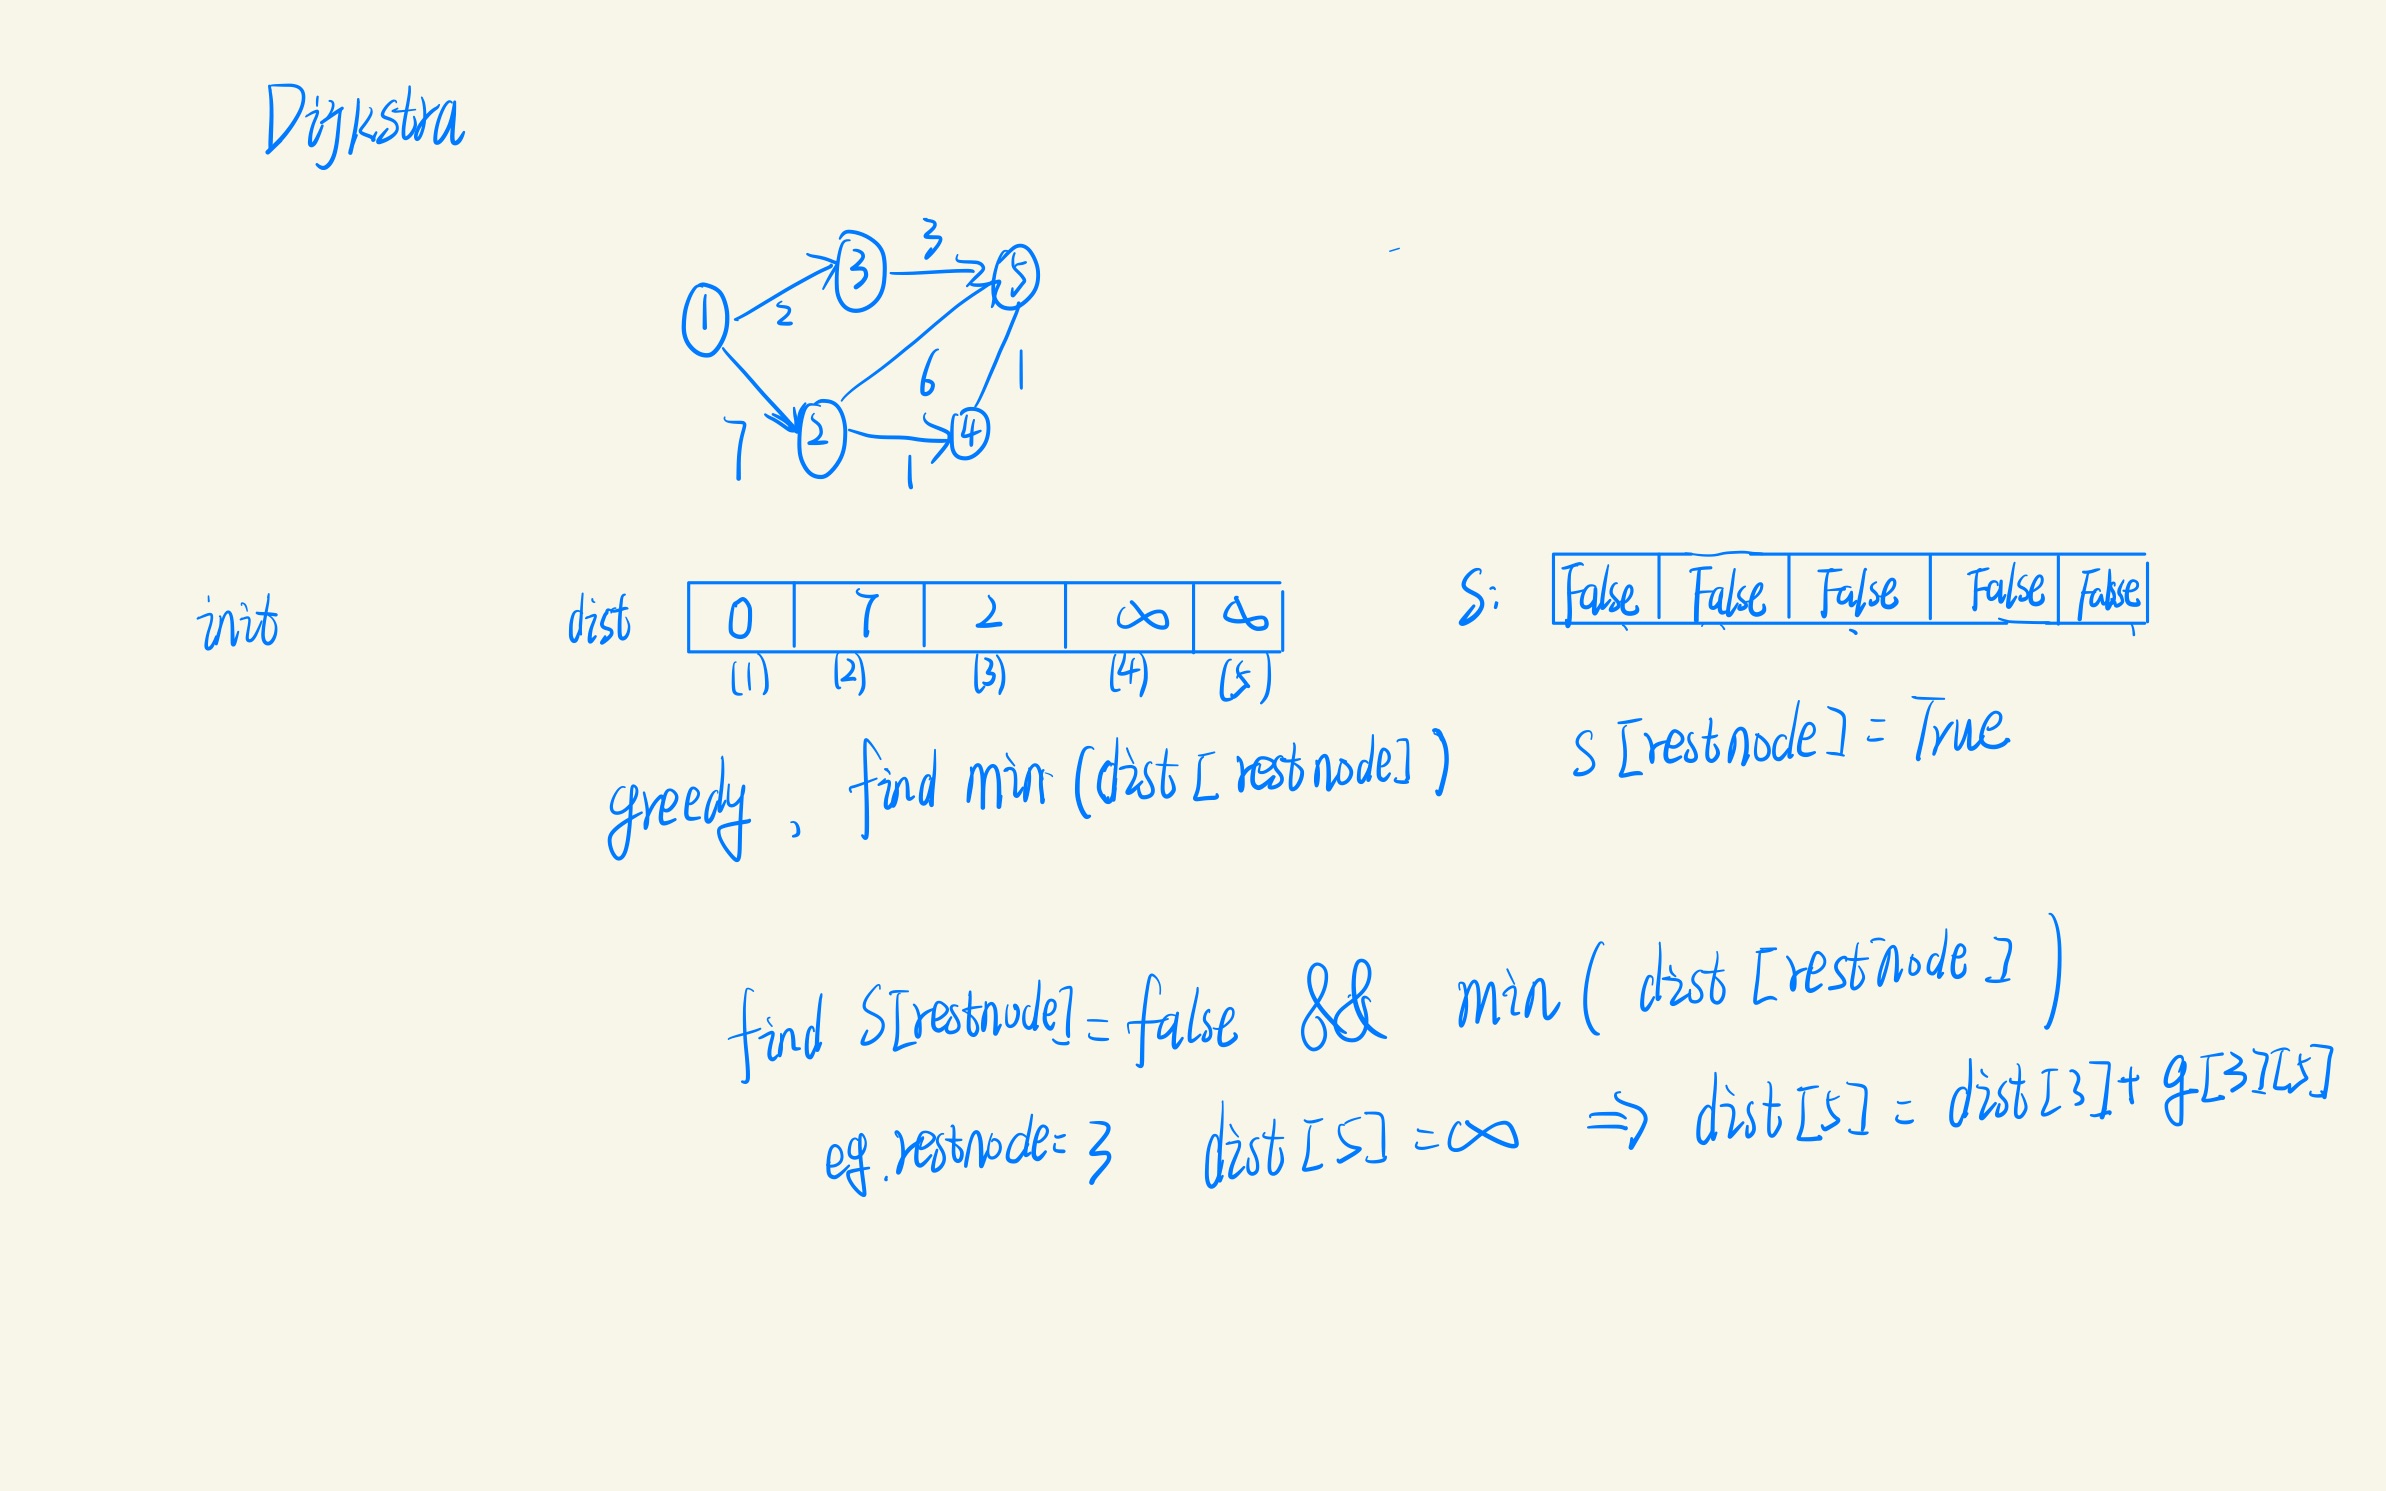 Dijkstra
3
3
5
1
2
6
1
7
2
4
1
init dist 0 7 2 ∞ ∞ S: False False False False False
(1) (2) (3) (4) (5)
greedy, find min (dist [restnode]) S[restnode] = True
find S[restnode] = false && min ( dist [restnode] )
eg. restnode = 3 dist [5] = ∞ ⇒ dist[5] = dist[3] + g[3][5]